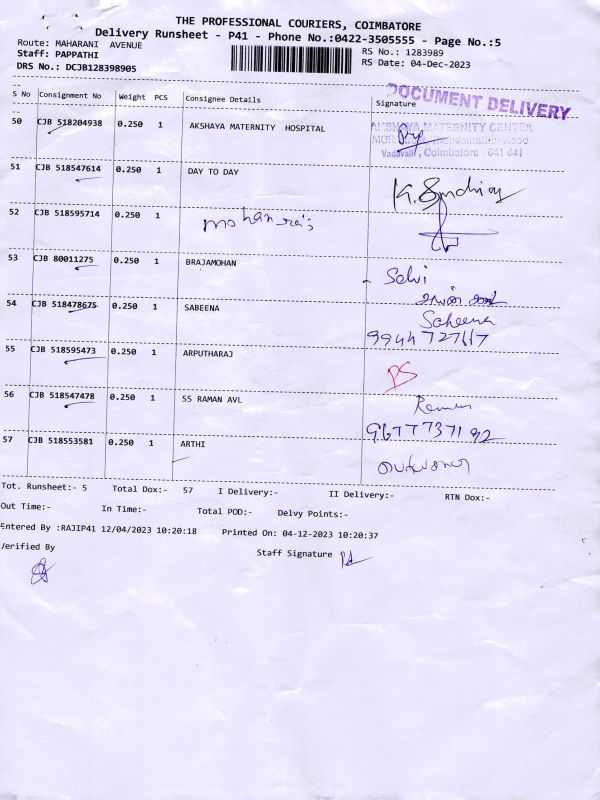 THE PROFESSIONAL COURIERS, COIMBATORE
Delivery Runsheet - P41 - Phone No.:0422-3505555 - Page No.:5
Route: MAHARANI AVENUE
RS No.: 1283989
Staff: PAPPATHI
RS Date: 04-Dec-2023
DRS No.: DCJB128398905
DOCUMENT DELIVERY
S No Consignment No Weight PCS Consignee Details Signature
50 CJB 518204938 0.250 1 AKSHAYA MATERNITY HOSPITAL
AKSHAYA MATERNITY CENTER
Vadavalli, Coimbatore - 641 041
51 CJB 518547614 0.250 1 DAY TO DAY
52 CJB 518595714 0.250 1 mohanraj's
53 CJB 80011275 0.250 1 BRAJAMOHAN Selvi
54 CJB 518478675 0.250 1 SABEENA Sabeena
55 CJB 518595473 0.250 1 ARPUTHARAJ PS
56 CJB 518547478 0.250 1 SS RAMAN AVL Raman
9677737192
57 CJB 518553581 0.250 1 ARTHI
Tot. Runsheet:- 5 Total Dox:- 57 I Delivery:- II Delivery:- RTN Dox:-
Out Time:- In Time:- Total POD:- Delvy Points:-
Entered By :RAJIP41 12/04/2023 10:20:18 Printed On: 04-12-2023 10:20:37
Verified By Staff Signature